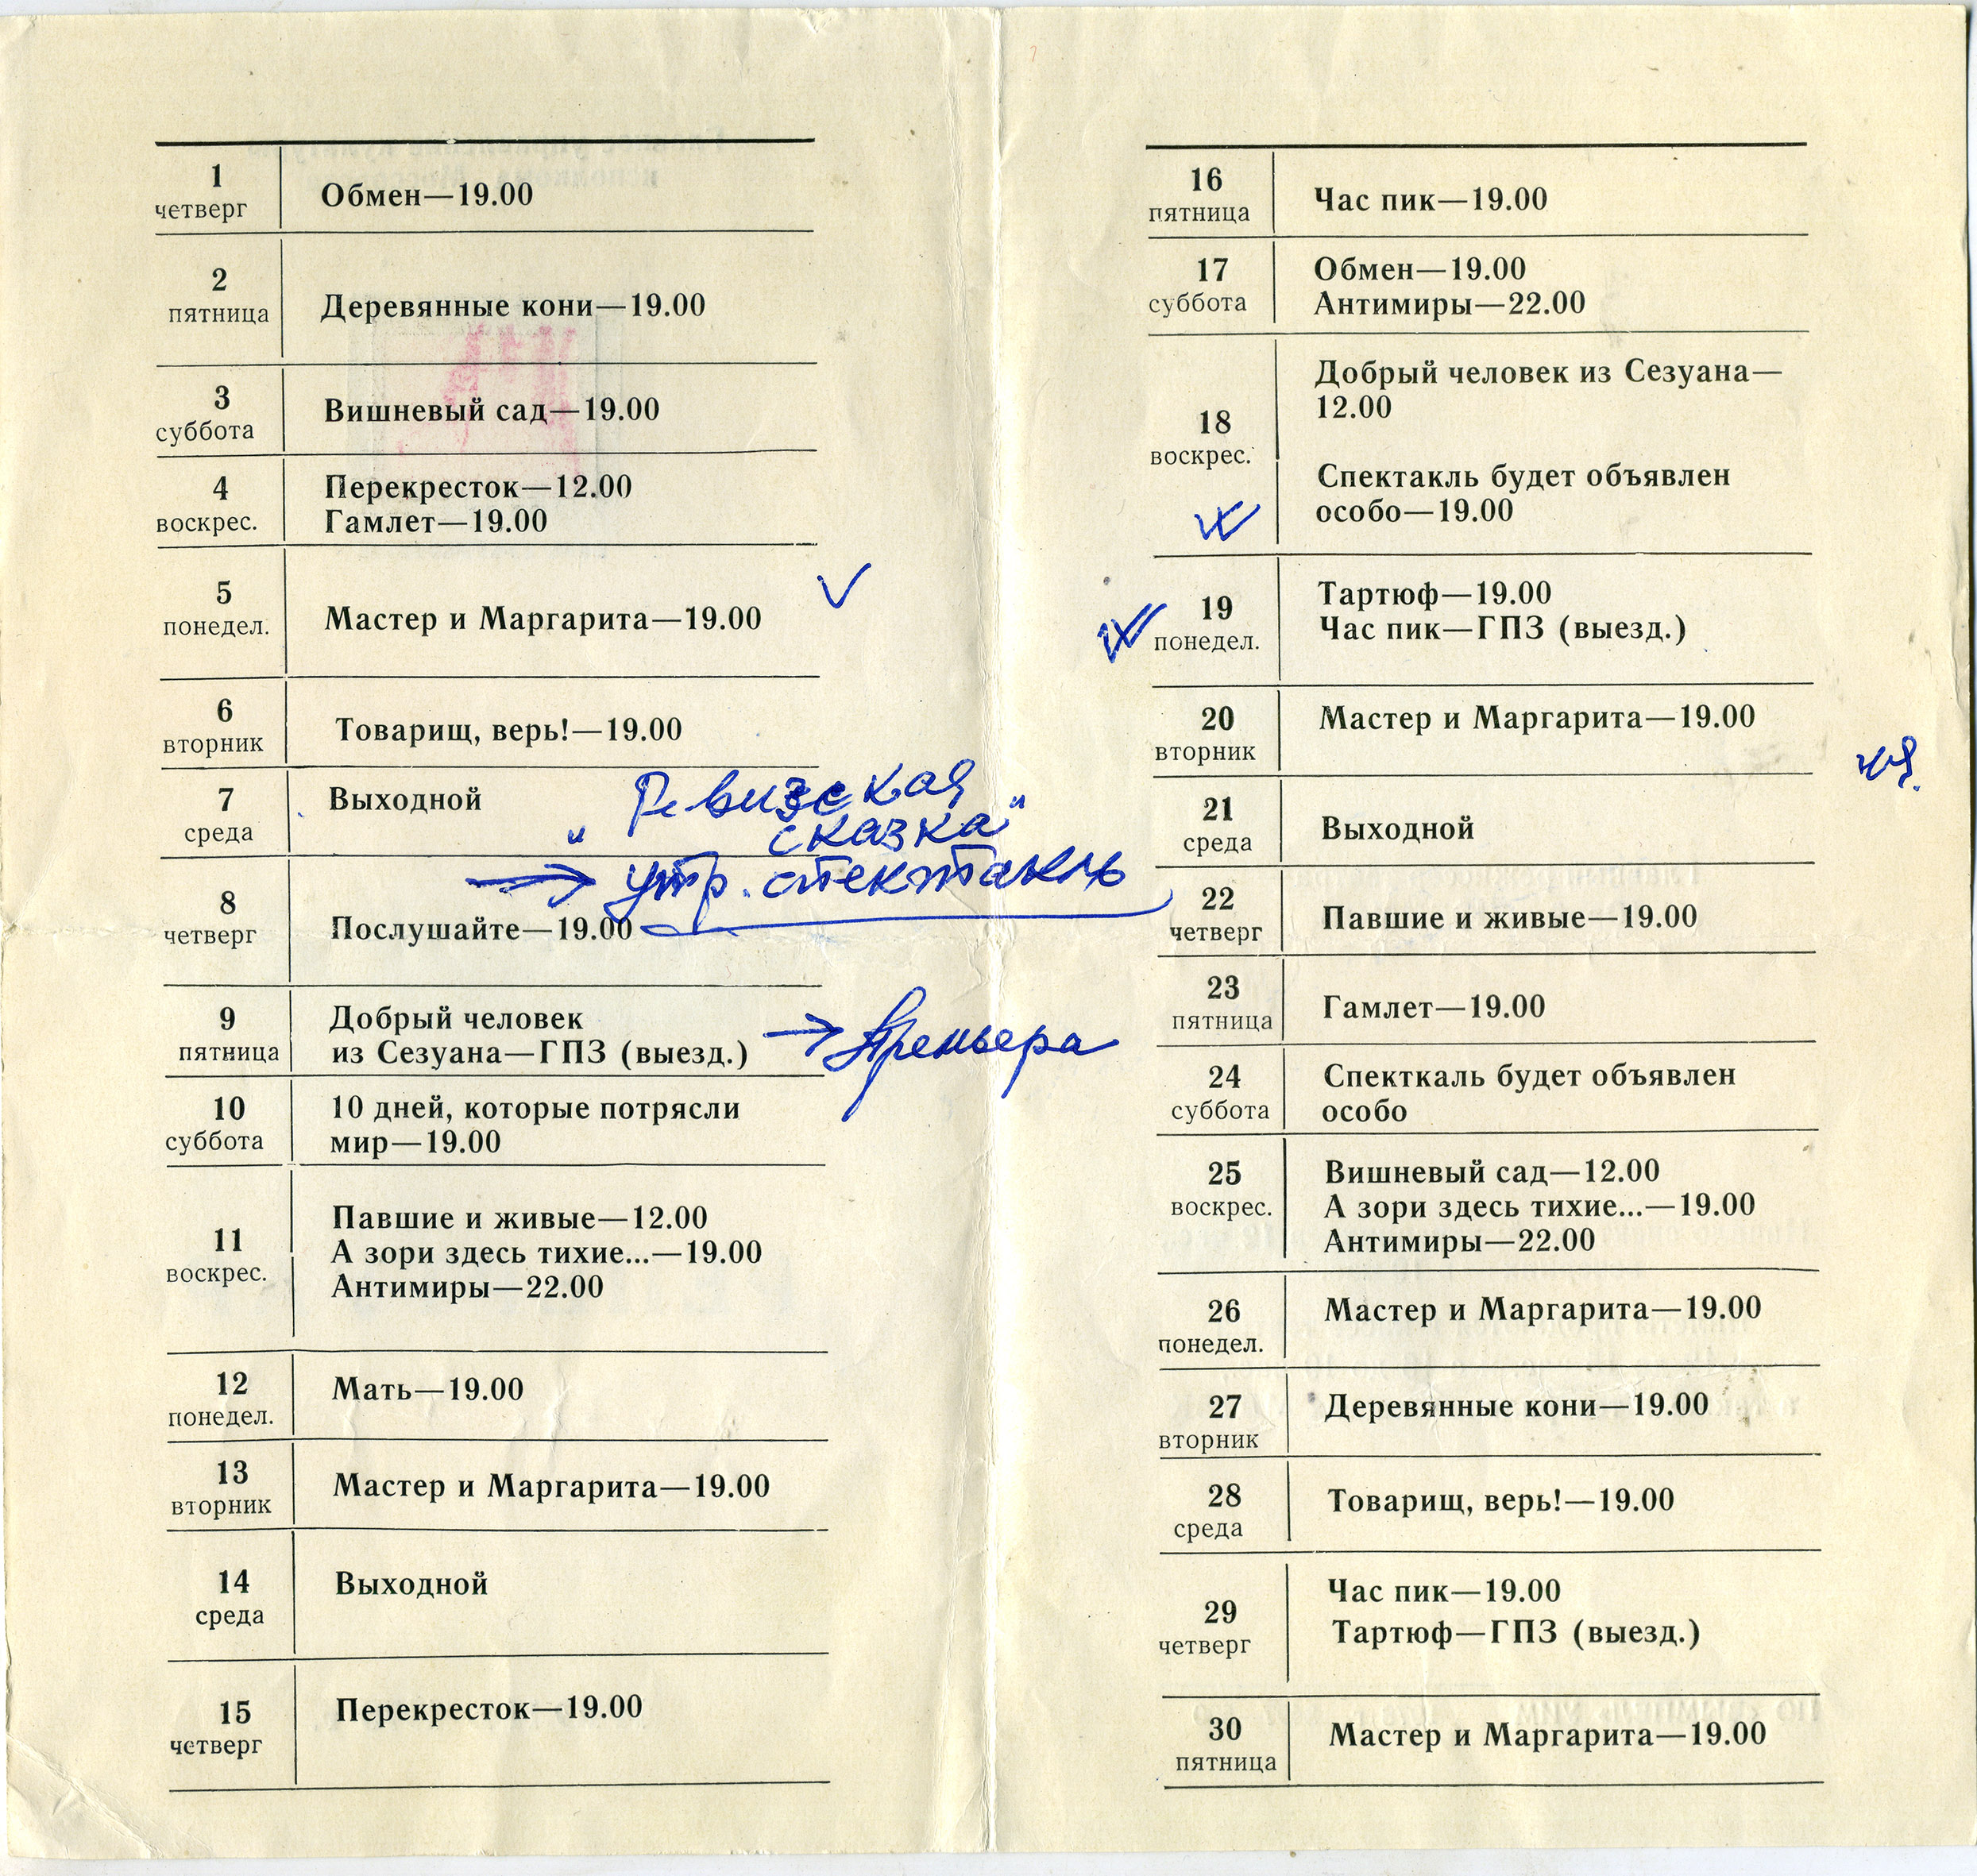 1
четверг
Обмен—19.00
2
пятница
Деревянные кони—19.00
3
суббота
Вишневый сад—19.00
4
воскрес.
Перекресток—12.00
Гамлет—19.00
5
понедел.
Мастер и Маргарита—19.00
6
вторник
Товарищ, верь!—19.00
7
среда
Выходной
„ Ревизская
сказка"
утр. спектакль
8
четверг
Послушайте—19.00
9
пятница
Добрый человек
из Сезуана—ГПЗ (выезд.)
Премьера
10
суббота
10 дней, которые потрясли
мир—19.00
11
воскрес.
Павшие и живые—12.00
А зори здесь тихие...—19.00
Антимиры—22.00
12
понедел.
Мать—19.00
13
вторник
Мастер и Маргарита—19.00
14
среда
Выходной
15
четверг
Перекресток—19.00
16
пятница
Час пик—19.00
17
суббота
Обмен—19.00
Антимиры—22.00
18
воскрес.
Добрый человек из Сезуана—
12.00
Спектакль будет объявлен
особо—19.00
19
понедел.
Тартюф—19.00
Час пик—ГПЗ (выезд.)
20
вторник
Мастер и Маргарита—19.00
21
среда
Выходной
22
четверг
Павшие и живые—19.00
23
пятница
Гамлет—19.00
24
суббота
Спекткаль будет объявлен
особо
25
воскрес.
Вишневый сад—12.00
А зори здесь тихие...—19.00
Антимиры—22.00
26
понедел.
Мастер и Маргарита—19.00
27
вторник
Деревянные кони—19.00
28
среда
Товарищ, верь!—19.00
29
четверг
Час пик—19.00
Тартюф—ГПЗ (выезд.)
30
пятница
Мастер и Маргарита—19.00